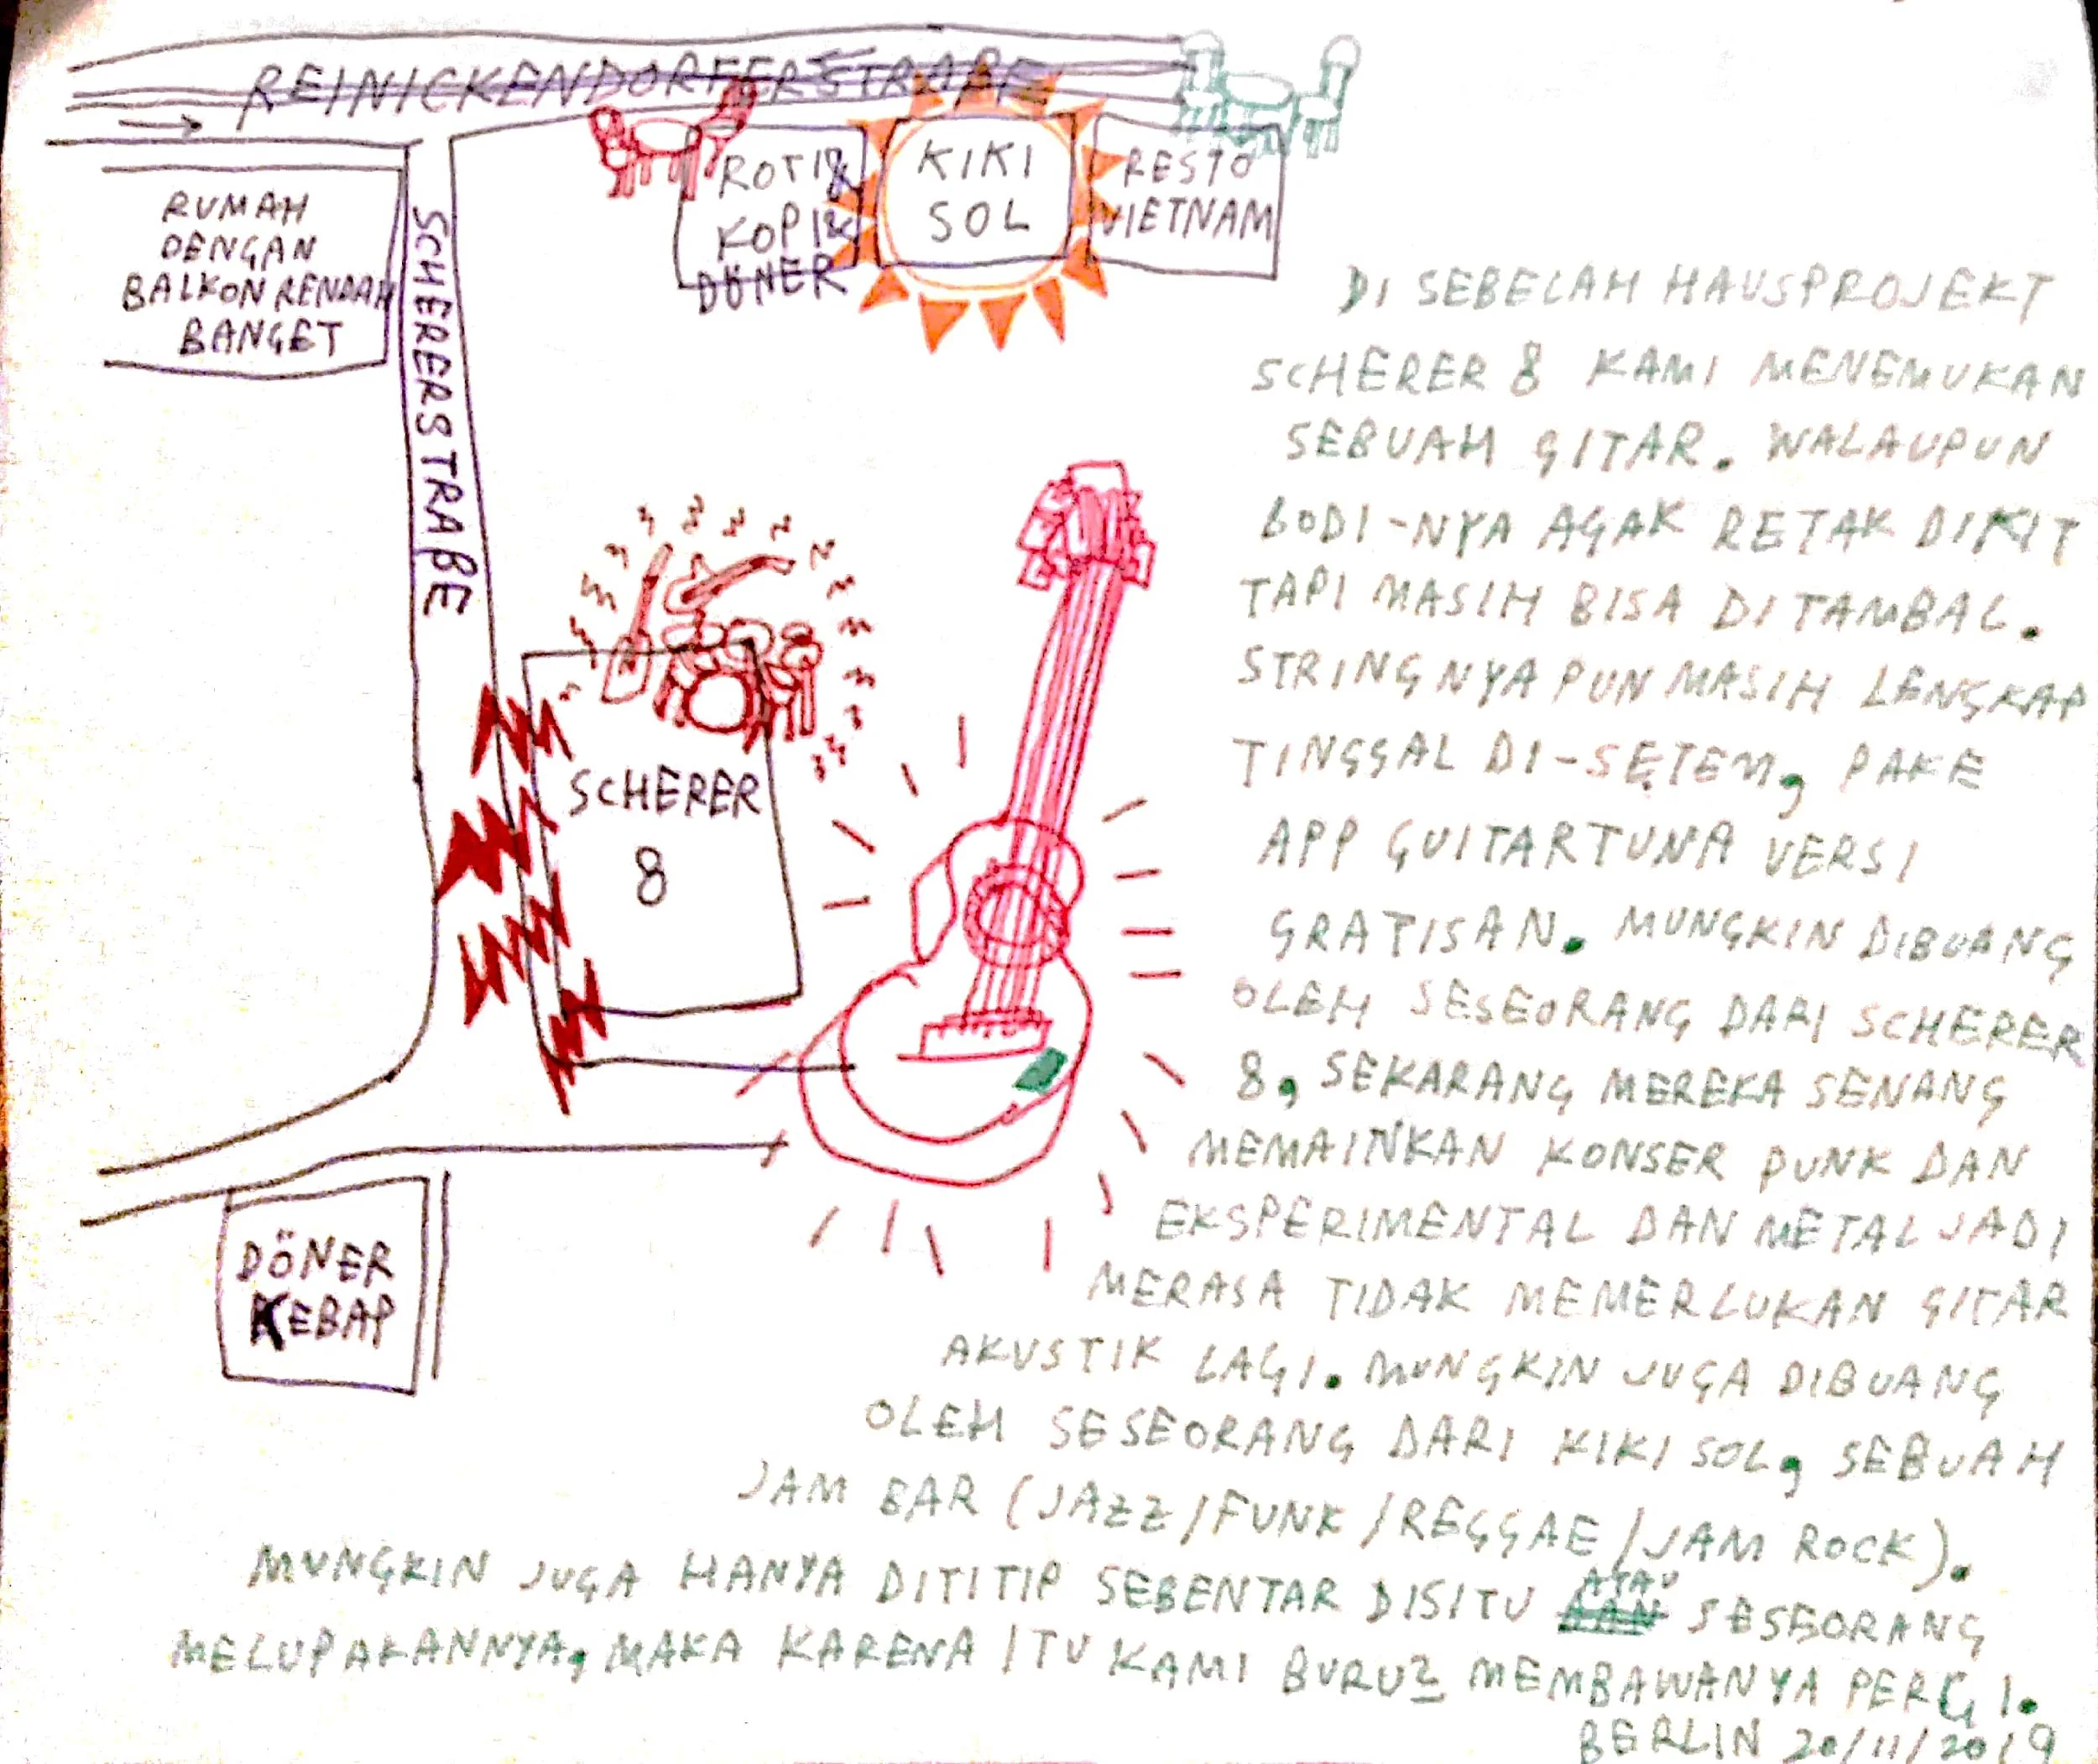 REINICKENDORFERSTRAßE
ROTI &
KOPI &
DÖNER
KIKI
SOL
RESTO
VIETNAM
RUMAH
DENGAN
BALKON RENDAH
BANGET
SCHERERSTRAßE
SCHERER
8
DÖNER
KEBAP
DI SEBELAH HAUSPROJEKT
SCHERER 8 KAMI MENEMUKAN
SEBUAH GITAR. WALAUPUN
BODI-NYA AGAK RETAK DIKIT
TAPI MASIH BISA DITAMBAL.
STRINGNYA PUN MASIH LENGKAP
TINGGAL DI-SETEM, PAKE
APP GUITARTUNA VERSI
GRATISAN. MUNGKIN DIBUANG
OLEH SESEORANG DARI SCHERER
8, SEKARANG MEREKA SENANG
MEMAINKAN KONSER PUNK DAN
EKSPERIMENTAL DAN METAL JADI
MERASA TIDAK MEMERLUKAN GITAR
AKUSTIK LAGI. MUNGKIN JUGA DIBUANG
OLEH SESEORANG DARI KIKI SOL, SEBUAH
JAM BAR (JAZZ/FUNK/REGGAE/JAM ROCK).
MUNGKIN JUGA HANYA DITITIP SEBENTAR DISITU ATAU SESEORANG
MELUPAKANNYA, MAKA KARENA ITU KAMI BURU2 MEMBAWANYA PERGI.
BERLIN 20/11/2019